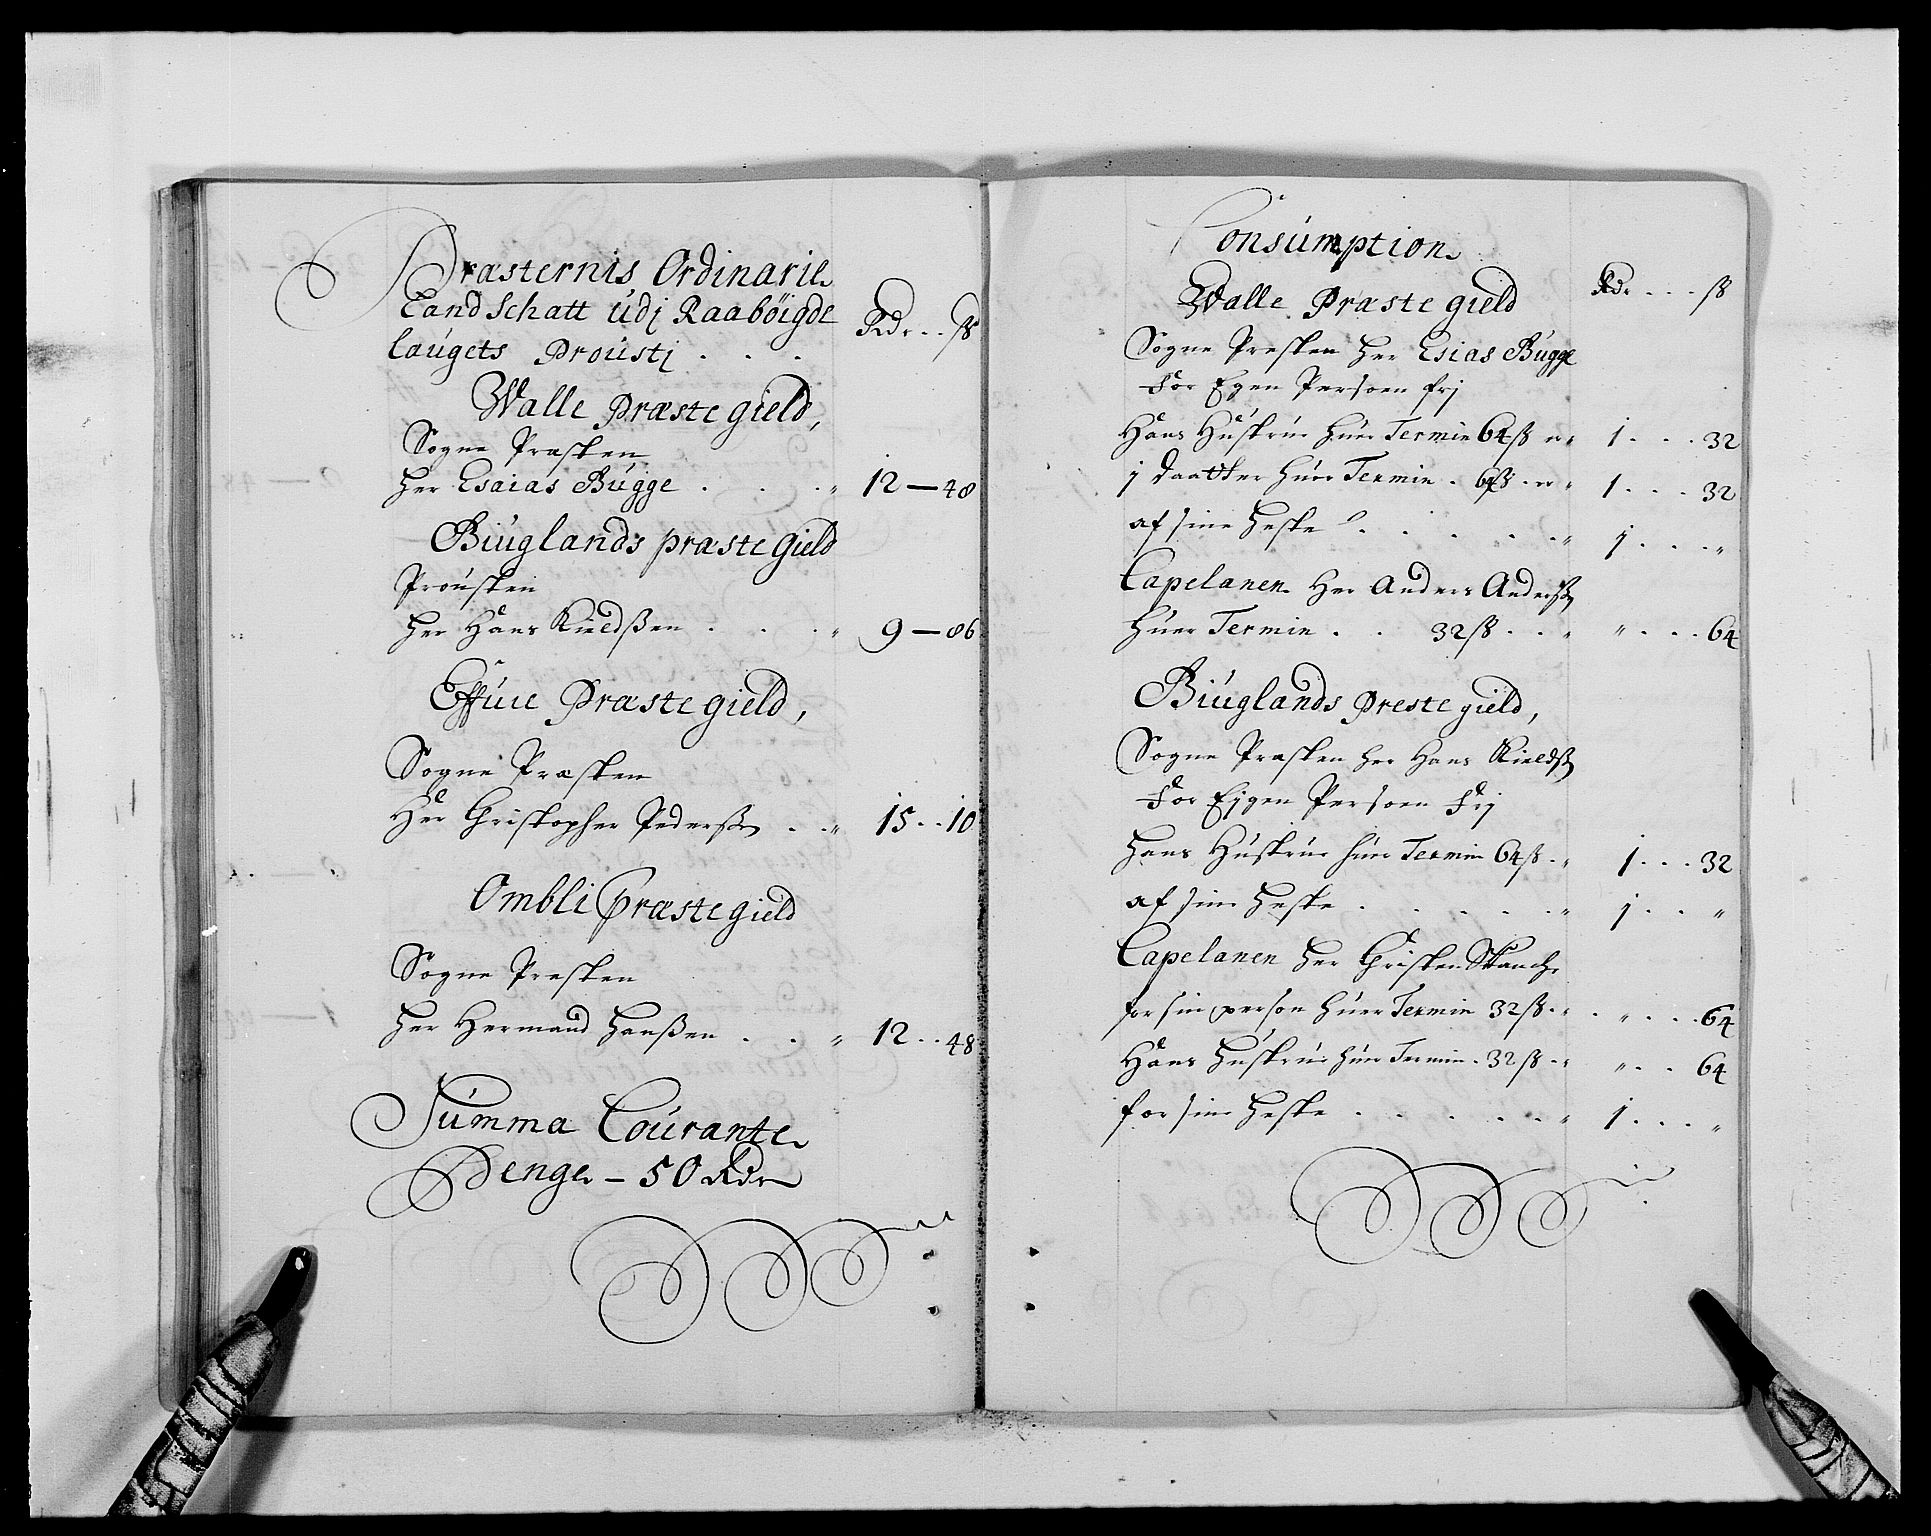 Præsternis Ordinarie
Land Schatt udj Raabøigde
laugets Proustj . . . Rdr . . ß
Walle Præste gield,
Sogne Præsten
her Esaias Bugge . . . 12 — 48
Biuglands præste Gield
Prousten
her Hans Kieldßen . . . 9 — 86
Effuie Præste gield,
Sogne Præsten
Her Christopher Pederß . . 15 . . 10
Ombli Præste gield
Sogne Presten
her Hermand Hanßen . . . 12 . . 48
Summa Courante
Penge – 50 Rdr
Consumption
Walle Præste gield Rdr . . . ß
Sogne Presten her Esias Bugge
for Egen Persoen frj
Hans Hustrue huer Termin 64 ß er 1 . . . 32
j daatter huer Termin . 64 ß . er 1 . . . 32
af sine heste . . . . . j . . . "
Capelanen Her Anders Anderß
huer Termin . . 32 ß . . . " . . . 64
Biuglands Preste gield,
Sogne Præsten her Hans Kieldß
for Ejgen Persoen Frj
hans Hustrue huer Termin 64 ß . 1 . . . 32
af sine heste . . . . . j . . "
Capelanen her Christen Skanche
for sin person huer Termin 32 ß . . " . . . 64
Hans hustrue huer Termin . 32 ß . " . . 64
for sine heste . . . . . . 1 . . . "